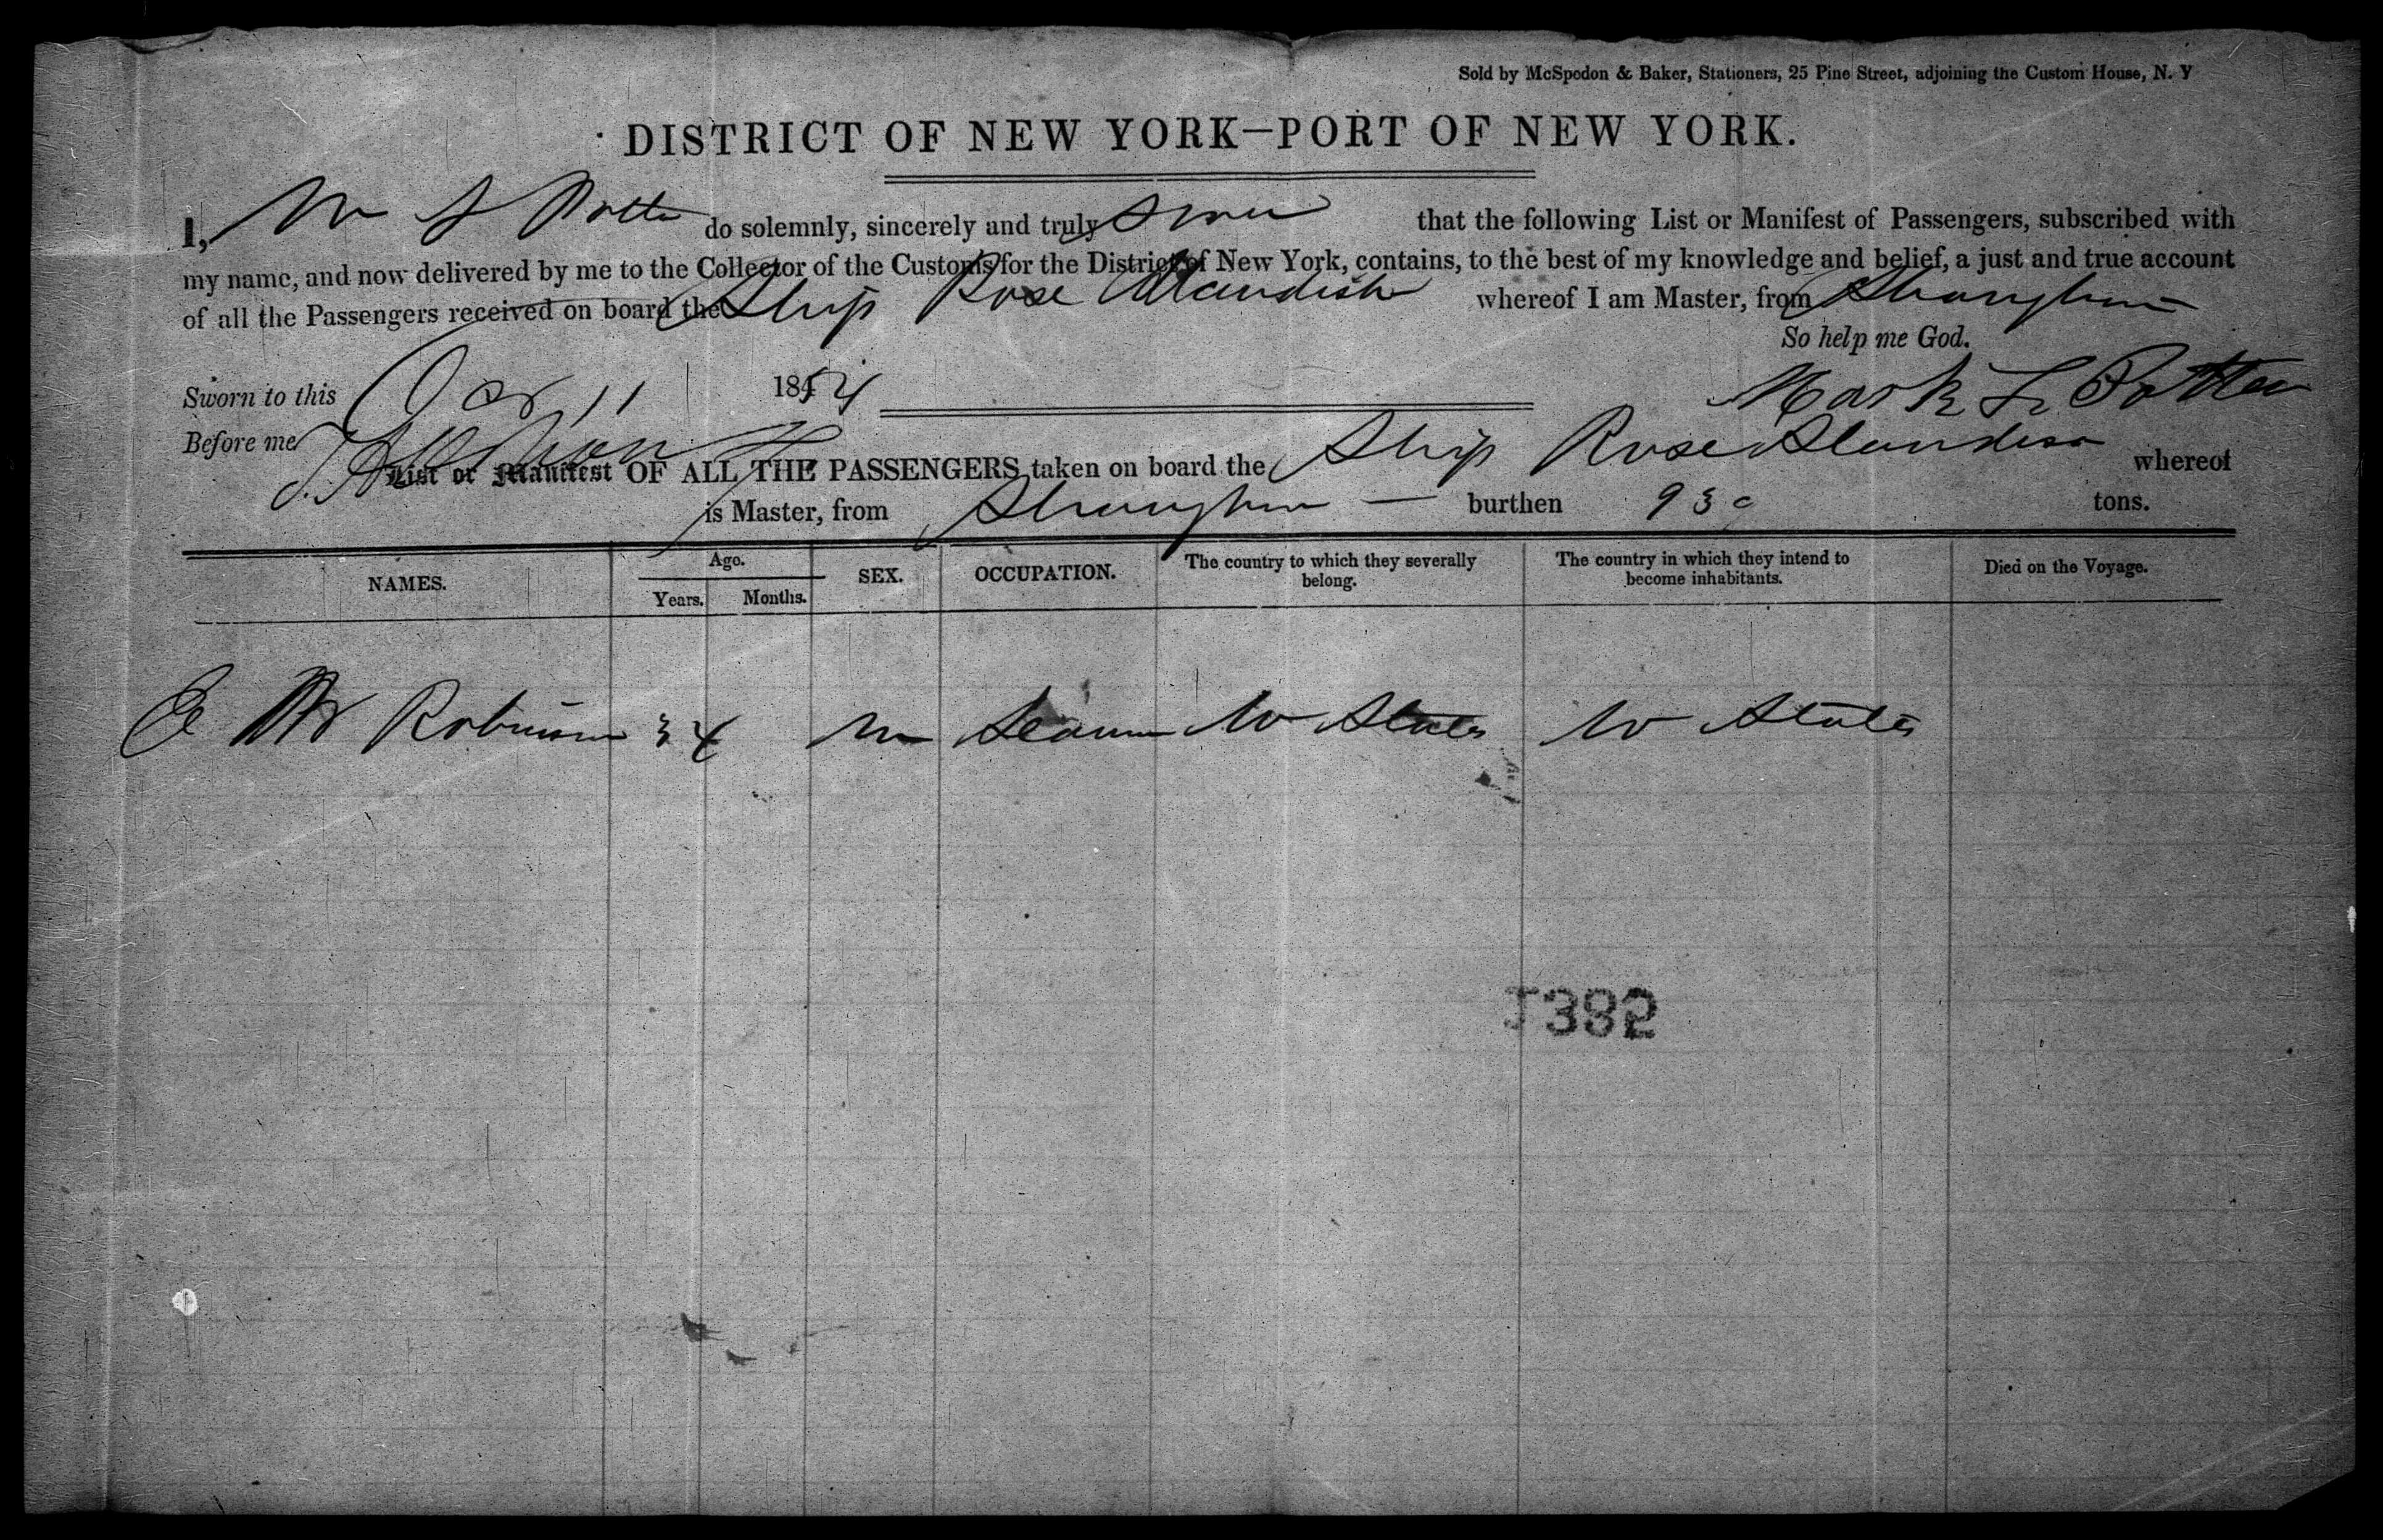 Sold by McSpedon & Baker, Stationers, 25 Pine Street, adjoining the Custom House, N. Y
DISTRICT OF NEW YORK—PORT OF NEW YORK.
I, M L Potter do solemnly, sincerely and truly swear that the following List or Manifest of Passengers, subscribed with
my name, and now delivered by me to the Collector of the Customs for the District of New York, contains, to the best of my knowledge and belief, a just and true account
of all the Passengers received on board the Ship Rose Standish whereof I am Master, from Shanghai
So help me God.
Sworn to this 11 1854
Mark L Potter
Before me
List or Manifest OF ALL THE PASSENGERS taken on board the Ship Rose Standish whereof
is Master, from Shanghai — burthen 930 tons.
NAMES. Age. Years. Months. SEX. OCCUPATION. The country to which they severally belong. The country in which they intend to become inhabitants. Died on the Voyage.
Robinson 34 m Seaman U States U States
1382